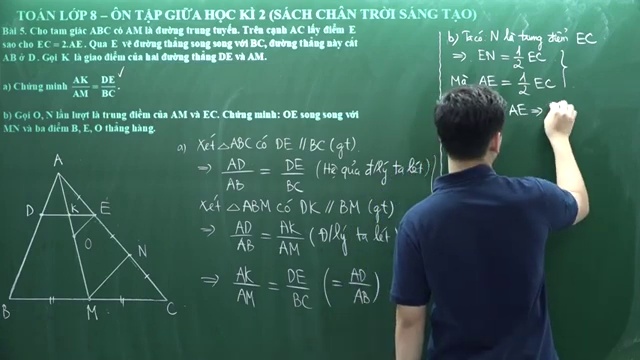 TOÁN LỚP 8 – ÔN TẬP GIỮA HỌC KÌ 2 (SÁCH CHÂN TRỜI SÁNG TẠO)
Bài 5. Cho tam giác ABC có AM là đường trung tuyến. Trên cạnh AC lấy điểm E
sao cho EC = 2.AE. Qua E vẽ đường thẳng song song với BC, đường thẳng này cắt
AB ở D. Gọi K là giao điểm của hai đường thẳng DE và AM.
a) Chứng minh AK/AM = DE/BC.
b) Gọi O, N lần lượt là trung điểm của AM và EC. Chứng minh: OE song song với
MN và ba điểm B, E, O thẳng hàng.
a) Xét △ABC có DE // BC (gt).
⇒ AD/AB = DE/BC (Hệ quả đ/lý ta lét)
Xét △ABM có DK // BM (gt)
⇒ AD/AB = AK/AM (Đ/lý ta lét)
⇒ AK/AM = DE/BC (= AD/AB)
b) Ta có N là trung điểm EC
⇒ EN = 1/2 EC
Mà AE = 1/2 EC
AE ⇒
A
D
K
E
O
N
B
M
C